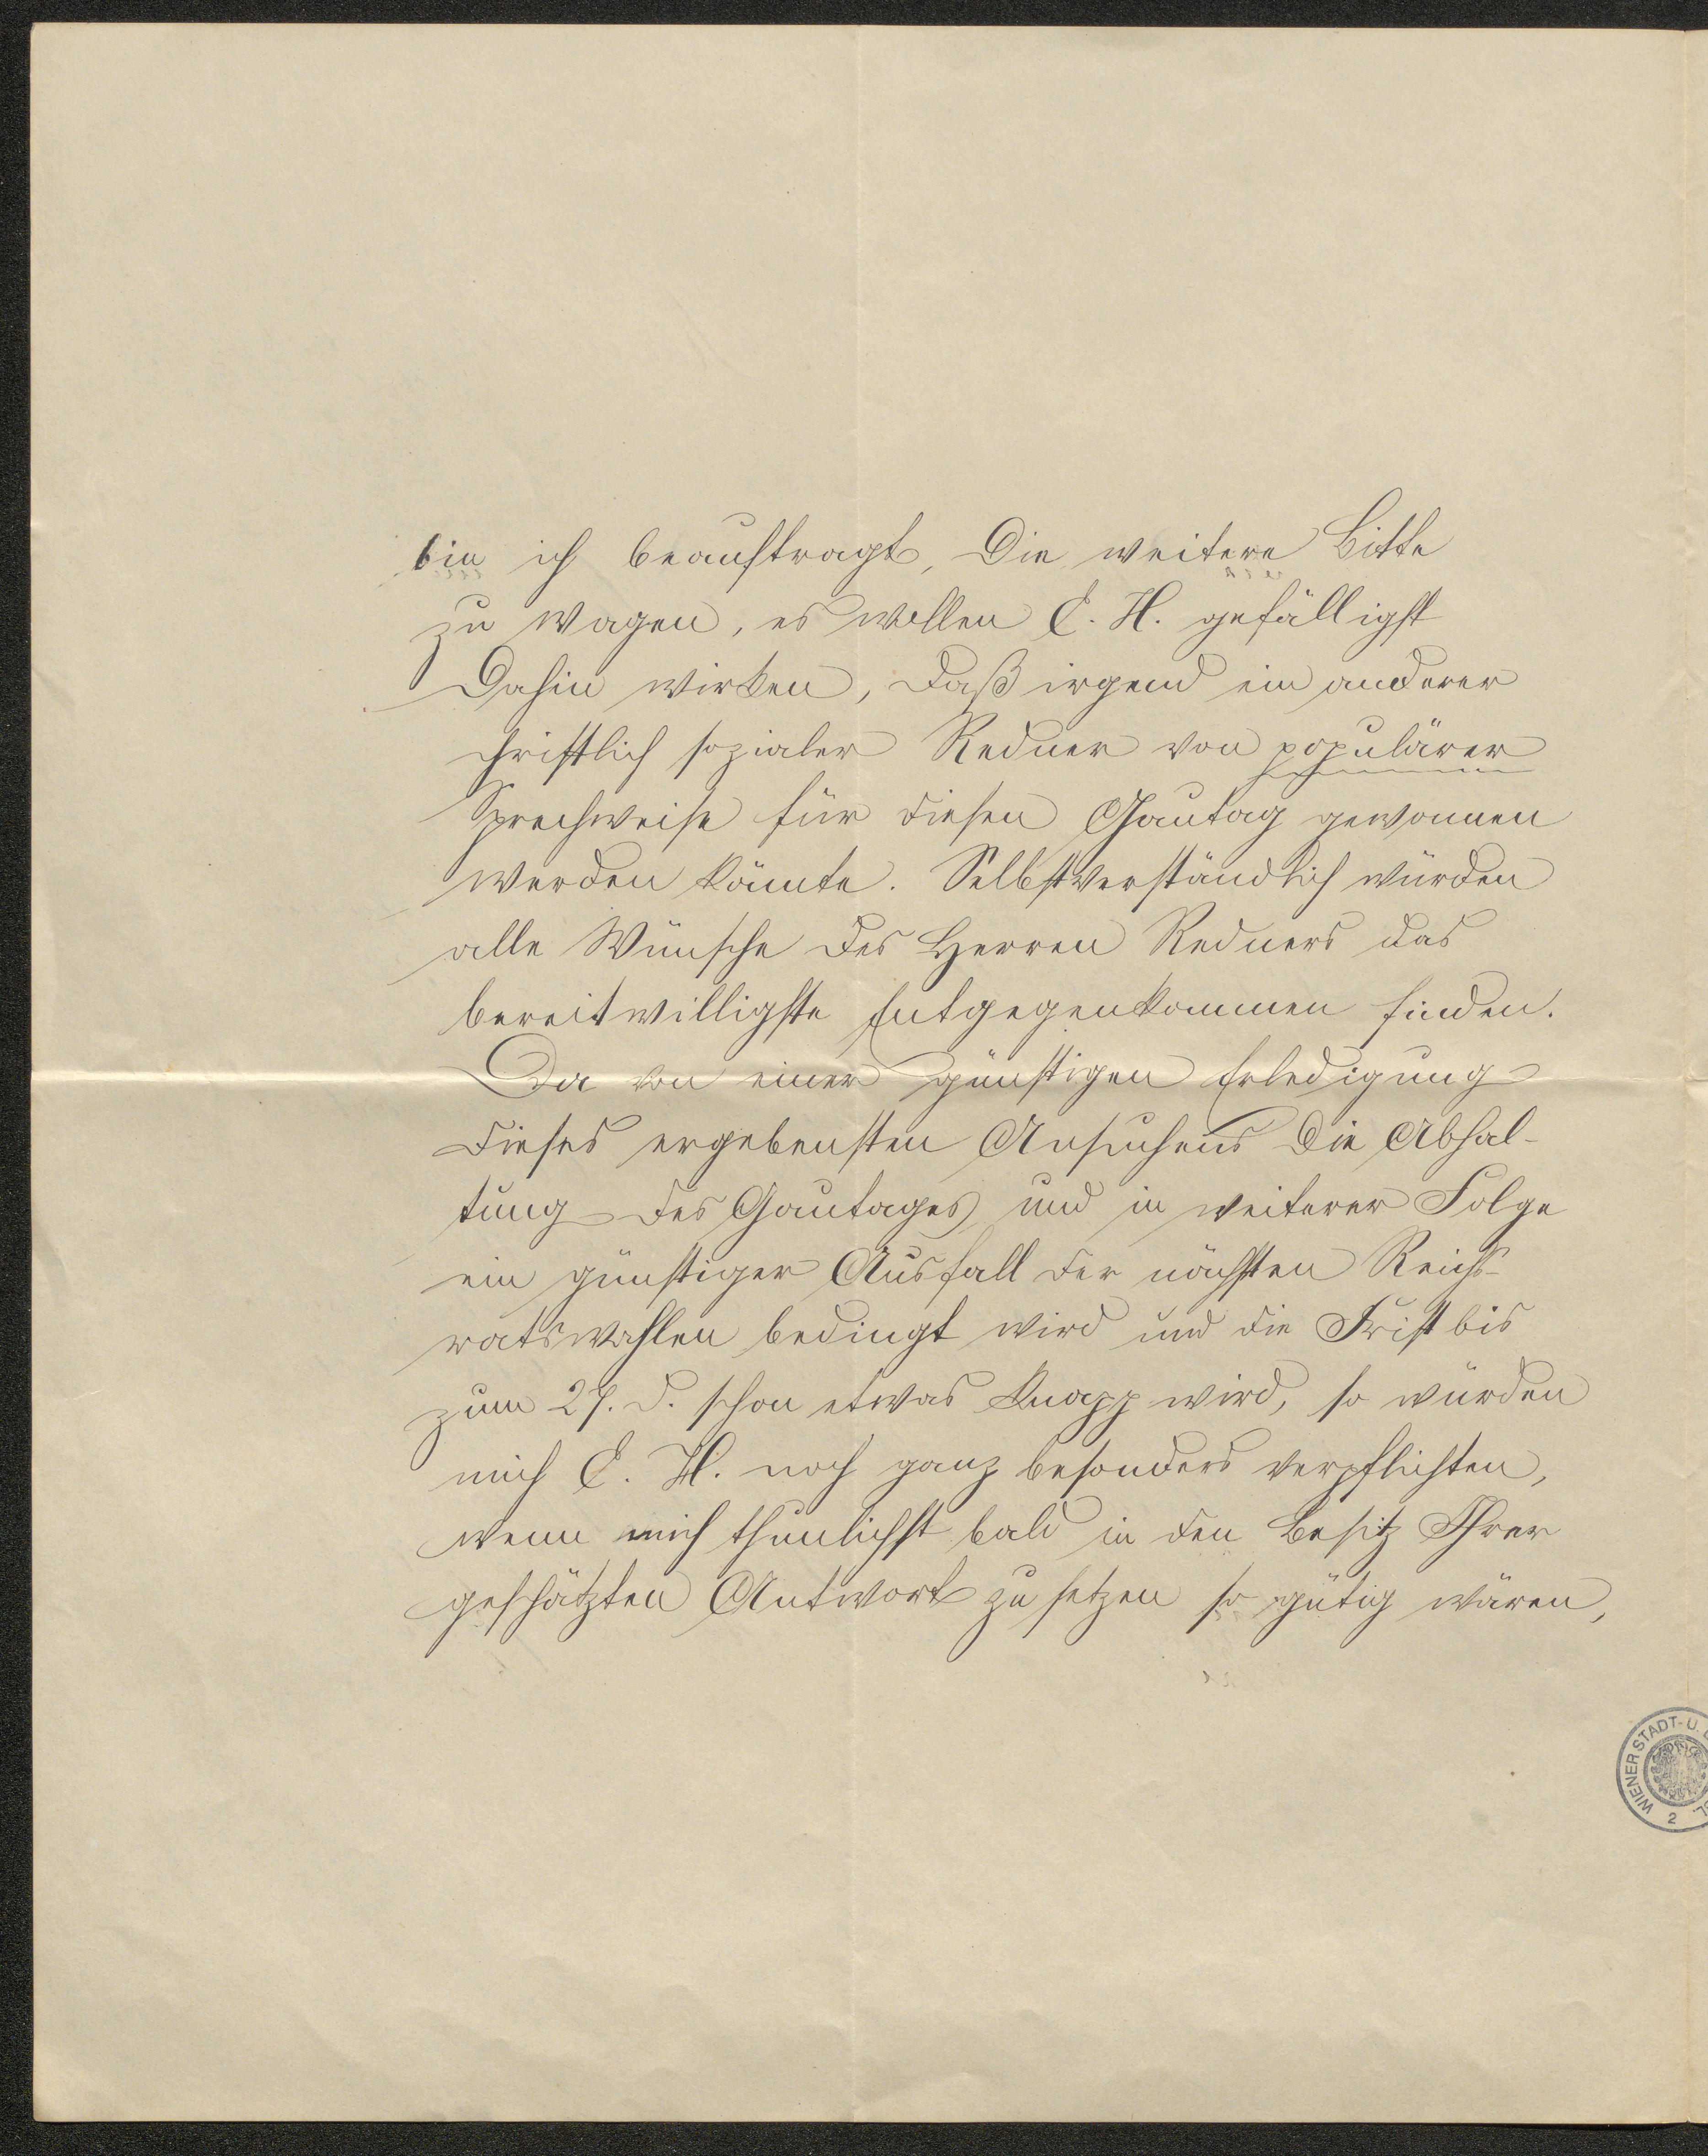 bin ich beauftragt, die weitere Bitte
zu wagen, es wollen E. H. gefälligst
dahin wirken, daß irgend ein anderer
christlich sozialer Redner von populärer
Sprechweise für diesen Gautag gewonnen
werden könnte. Selbstverständlich würden
alle Wünsche des Herren Redners das
bereitwilligste Entgegenkommen finden.
Da von einer günstigen Erledigung
dieses ergebensten Ansuchens die Abhal-
tung des Gautages und in weiterer Folge
ein günstiger Ausfall der nächsten Reichs-
ratswahlen bedingt wird und die Frist bis
zum 27. d. schon etwas knapp wird, so würden
mich E. H. noch ganz besonders verpflichten,
wenn mich thunlichst bald in den Besitz Ihrer
geschätzten Antwort zu setzen so gütig wären,
WIENER STADT- U.
2